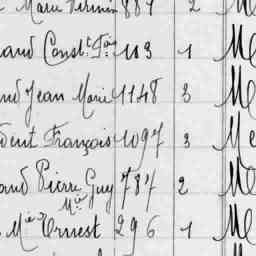 Marie Firmin 887 2 Me
aud Const.t F.ois 113 1 Me
and Jean Marie 1148 3 Me
dent François 1097 3 Me
aud Pierre Guy 787 2 Me
Mie
Mie Ernest 296 1 Me